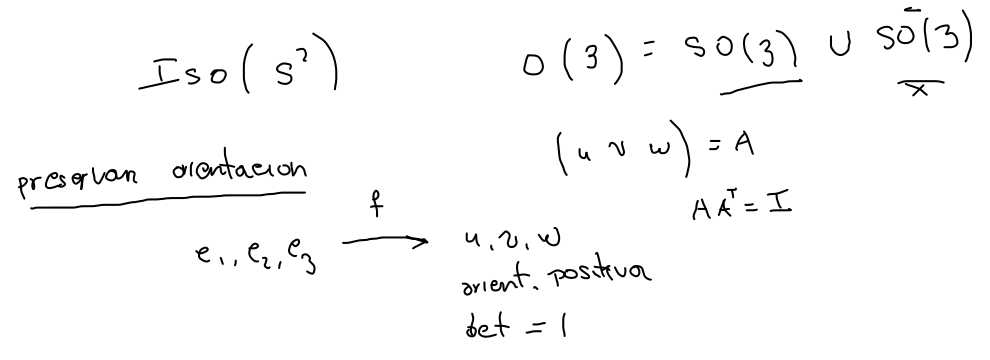 Iso(S²)
O(3) = SO(3) ∪ SO⁻(3)
x
(u v w) = A
preservan orientacion
A Aᵀ = I
f
e₁, e₂, e₃ → u, v, w
orient. positiva
det = 1